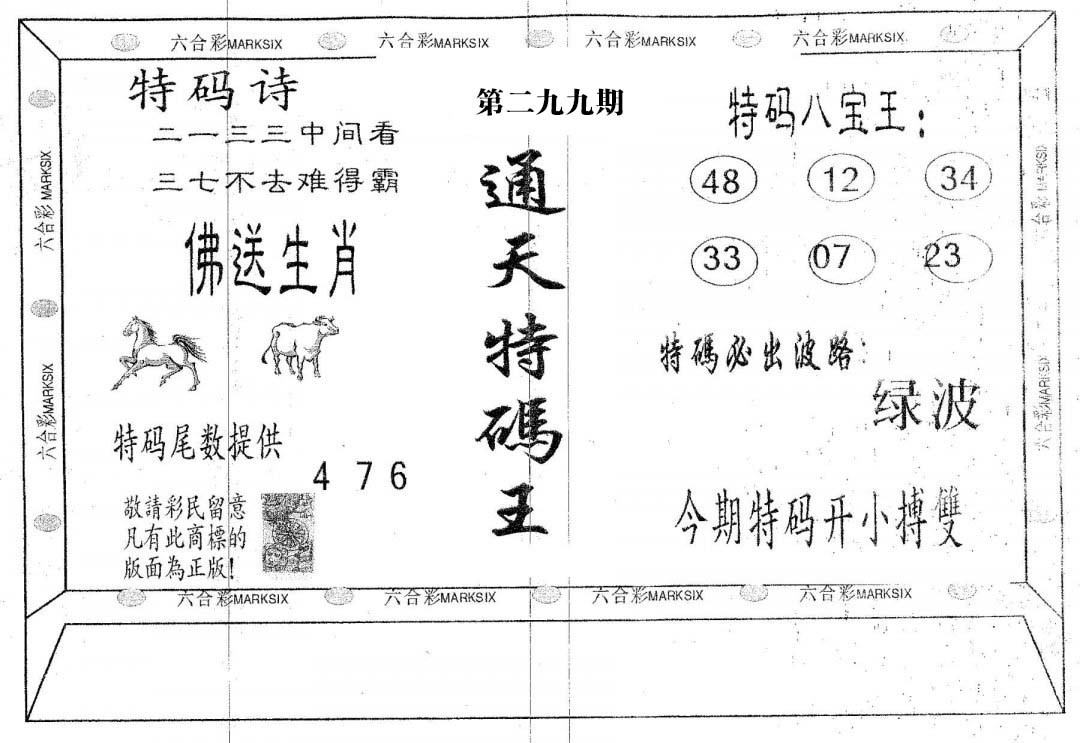 六合彩MARKSIX 六合彩MARKSIX 六合彩MARKSIX 六合彩MARKSIX
六合彩MARKSIX
六合彩MARKSIX
特码诗
二一三三中间看
三七不去难得霸
佛送生肖
特码尾数提供
4 7 6
敬請彩民留意
凡有此商標的
版面為正版!
第二九九期
通天特碼王
特码八宝王:
48 12 34
33 07 23
特碼必出波路:
绿波
今期特码开小搏雙
六合彩MARKSIX
六合彩MARKSIX
六合彩MARKSIX 六合彩MARKSIX 六合彩MARKSIX 六合彩MARKSIX